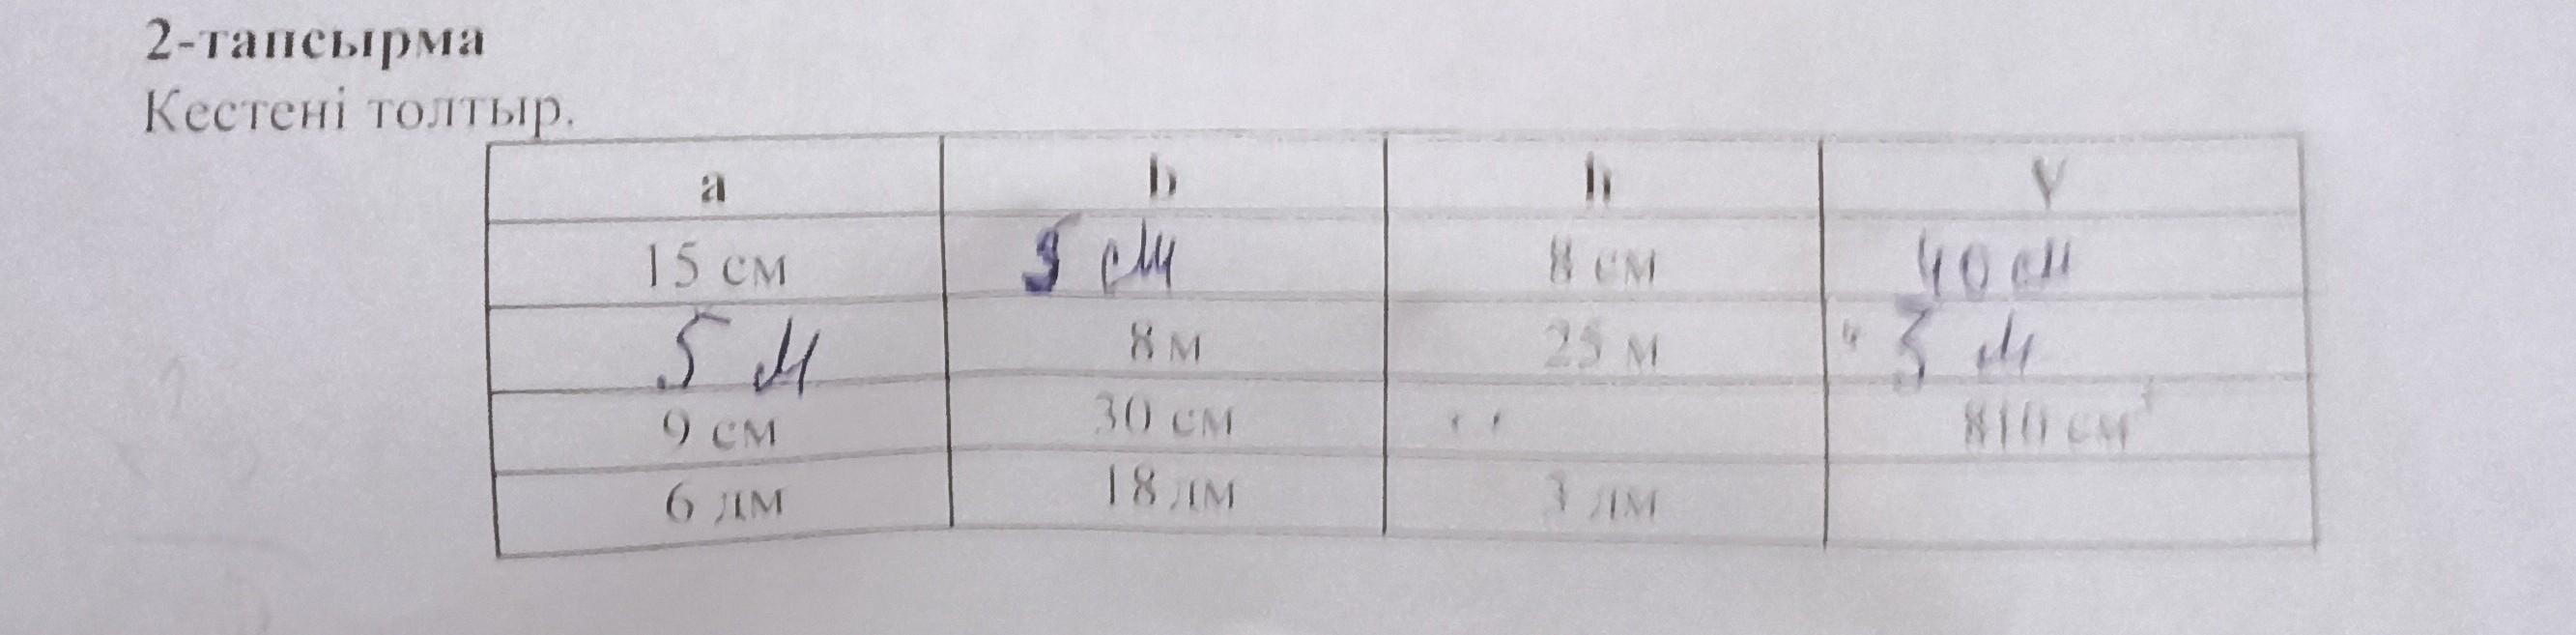 2-тапсырма
Кестені толтыр.
a b h V
15 см 5 см 8 см 40 см
5 м 8 м 25 м 5 м
9 см 30 см 810 см³
6 дм 18 дм 3 дм